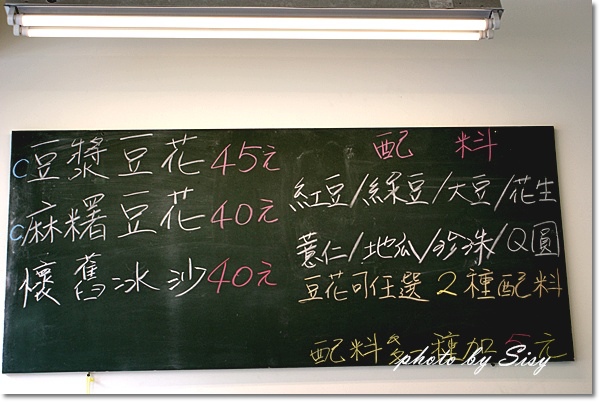 C豆漿豆花45元
C麻糬豆花40元
懷舊冰沙40元
配料
紅豆/綠豆/大豆/花生
薏仁/地瓜/珍珠/Q圓
豆花可任選2種配料
配料多一種加5元
photo by Sisy